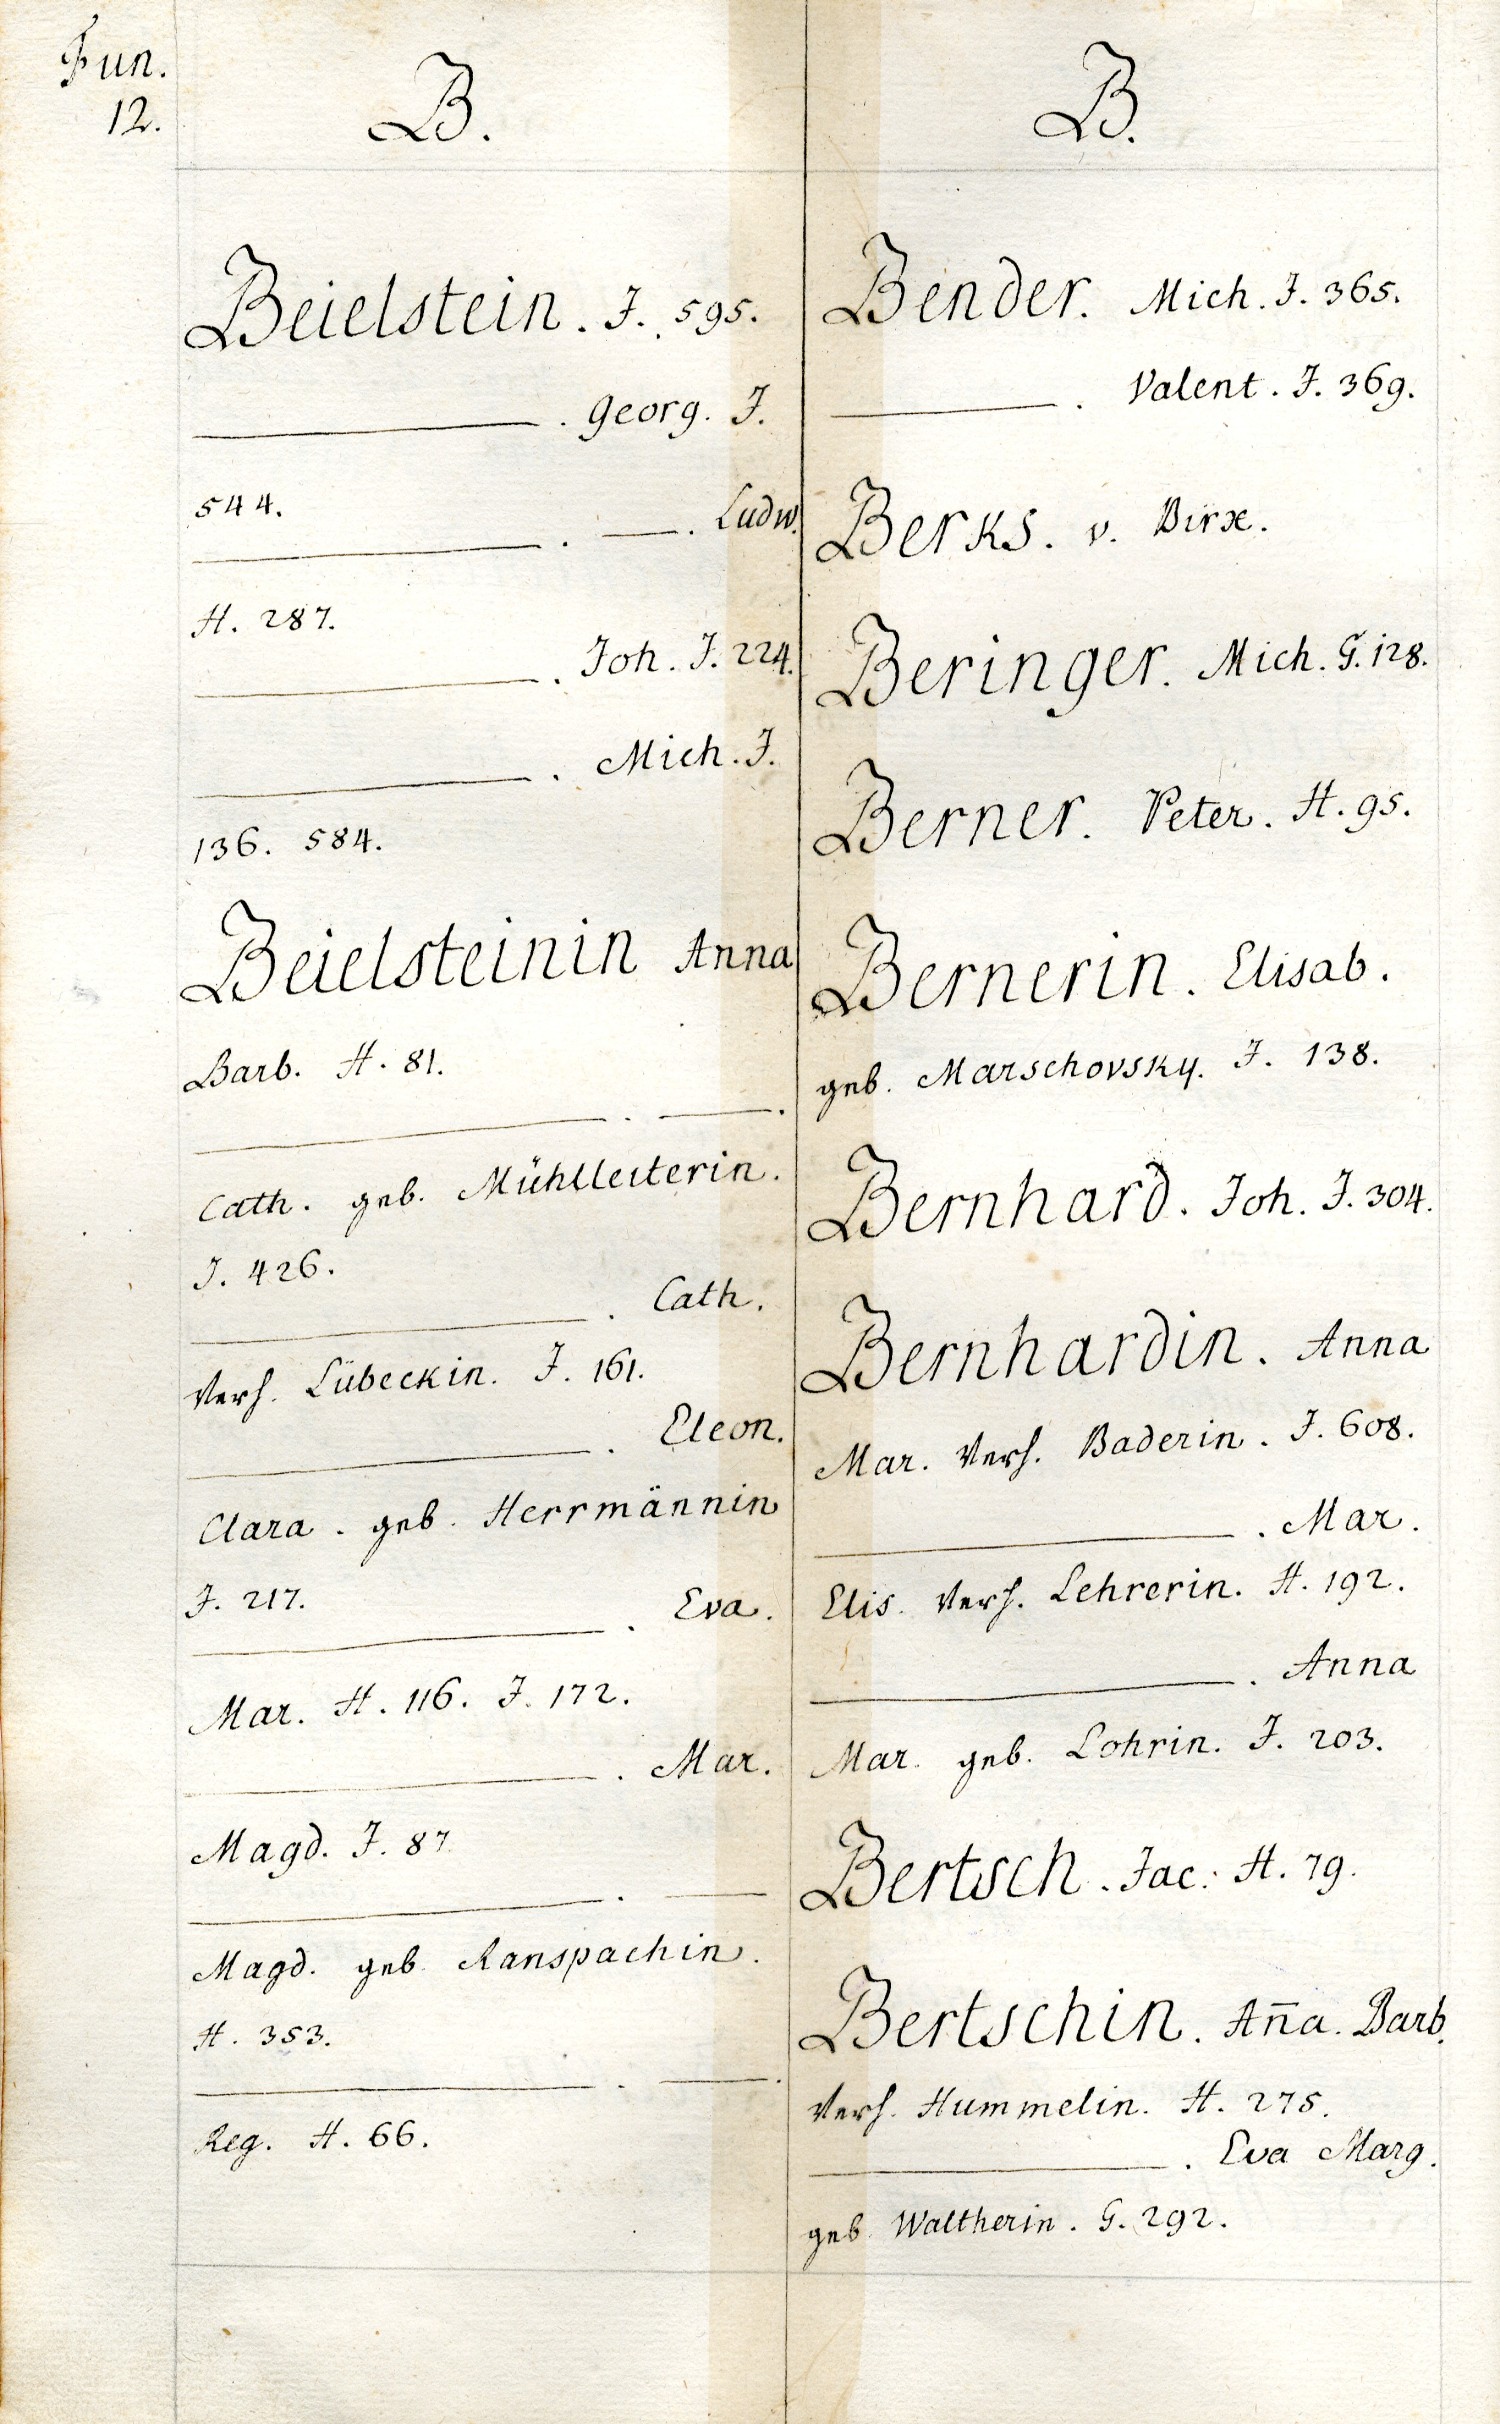 Fun.
12.
B.
Beielstein. J. 595.
———. Georg. J.
544.
———. ——. Ludw.
H. 287.
———. Joh. J. 224.
———. Mich. J.
136. 584.
Beielsteinin Anna
Barb. H. 81.
———. ——.
Cath. geb. Mühlleiterin.
J. 426.
———. Cath.
Verh. Lübeckin. J. 161.
———. Eleon.
Clara. geb. Herrmännin
J. 217.
———. Eva.
Mar. H. 116. J. 172.
———. Mar.
Magd. J. 87.
———. ——
Magd. geb. Ranspachin.
H. 353.
———. ——.
Reg. H. 66.
B.
Bender. Mich. J. 365.
———. Valent. J. 369.
Berks. v. Birx.
Beringer. Mich. G. 128.
Berner. Peter. H. 95.
Bernerin. Elisab.
geb. Marschovsky. J. 138.
Bernhard. Joh. J. 304.
Bernhardin. Anna
Mar. Verh. Baderin. J. 608.
———. Mar.
Elis. Verh. Lehrerin. H. 192.
———. Anna
Mar. geb. Lohrin. J. 203.
Bertsch. Jac: H. 79.
Bertschin. An̄a. Barb.
Verh. Hummelin. H. 275.
———. Eva Marg.
geb. Waltherin. G. 292.